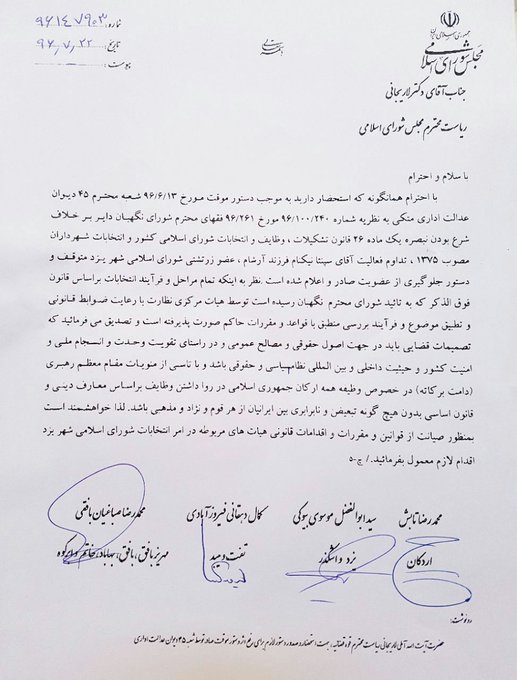 جمهوری اسلامی ایران
مجلس شورای اسلامی
شماره: ۹۶۱۴۷۹۰۳
تاریخ: ۹۶,۷,۲۲
پیوست:
جناب آقای دکتر لاریجانی
ریاست محترم مجلس شورای اسلامی
با سلام و احترام
با احترام همانگونه که استحضار دارید به موجب دستور موقت مورخ ۹۶/۶/۱۳ شعبه محترم ۴۵ دیوان
عدالت اداری متکی به نظریه شماره ۹۶/۱۰۰/۲۴۰ مورخ ۹۶/۲۶۱ فقهای محترم شورای نگهبان دایر بر خلاف
شرع بودن تبصره یك ماده ۲۶ قانون تشکیلات ، وظایف و انتخابات شورای اسلامی کشور و انتخابات شهرداران
مصوب ۱۳۷۵ ، تداوم فعالیت آقای سپنتا نیکنام فرزند آرشام ، عضو زرتشتی شورای اسلامی شهر یزد متوقف و
دستور جلوگیری از عضویت صادر و اعلام شده است .نظر به اینکه تمام مراحل و فرآیند انتخابات براساس قانون
فوق الذکر که به تائید شورای محترم نگهبان رسیده است توسط هیات مرکزی نظارت با رعایت ضوابط قانونی
و تطبیق موضوع و فرآیند بررسی منطبق با قواعد و مقررات حاکم صورت پذیرفته است و تصدیق می فرمائید که
تصمیمات قضایی باید در جهت اصول حقوقی و مصالح عمومی و در راستای تقویت وحدت و انسجام ملی و
امنیت کشور و حیثیت داخلی و بین المللی نظام‌سیاسی و حقوقی باشد و با تاسی از منویات مقام معظم رهبری
(دامت برکاته) در خصوص وظیفه همه ارکان جمهوری اسلامی در روا داشتن وظایف براساس معارف دینی و
قانون اساسی بدون هیچ گونه تبعیض و نابرابری بین ایرانیان از هر قوم و نژاد و مذهبی باشد. لذا خواهشمند است
بمنظور صیانت از قوانین و مقررات و اقدامات قانونی هیات های مربوطه در امر انتخابات شورای اسلامی شهر یزد
اقدام لازم معمول بفرمائید./ ج-۵
محمدرضا تابش سید ابوالفضل موسوی بیوکی کمال دهقانی فیروزآبادی محمدرضا صباغیان بافقی
اردکان یزد و اشکذر تفت و میبد مهریز بافق ، بافق، بهاباد، خاتم و ابرکوه
رونوشت:
حضرت آیت الله آملی لاریجانی ریاست محترم قوه قضائیه : جهت استحضار و صدور دستور لازم برای رفع اثر دستور موقت صادره توسط شعبه ۴۵ دیوان عدالت اداری